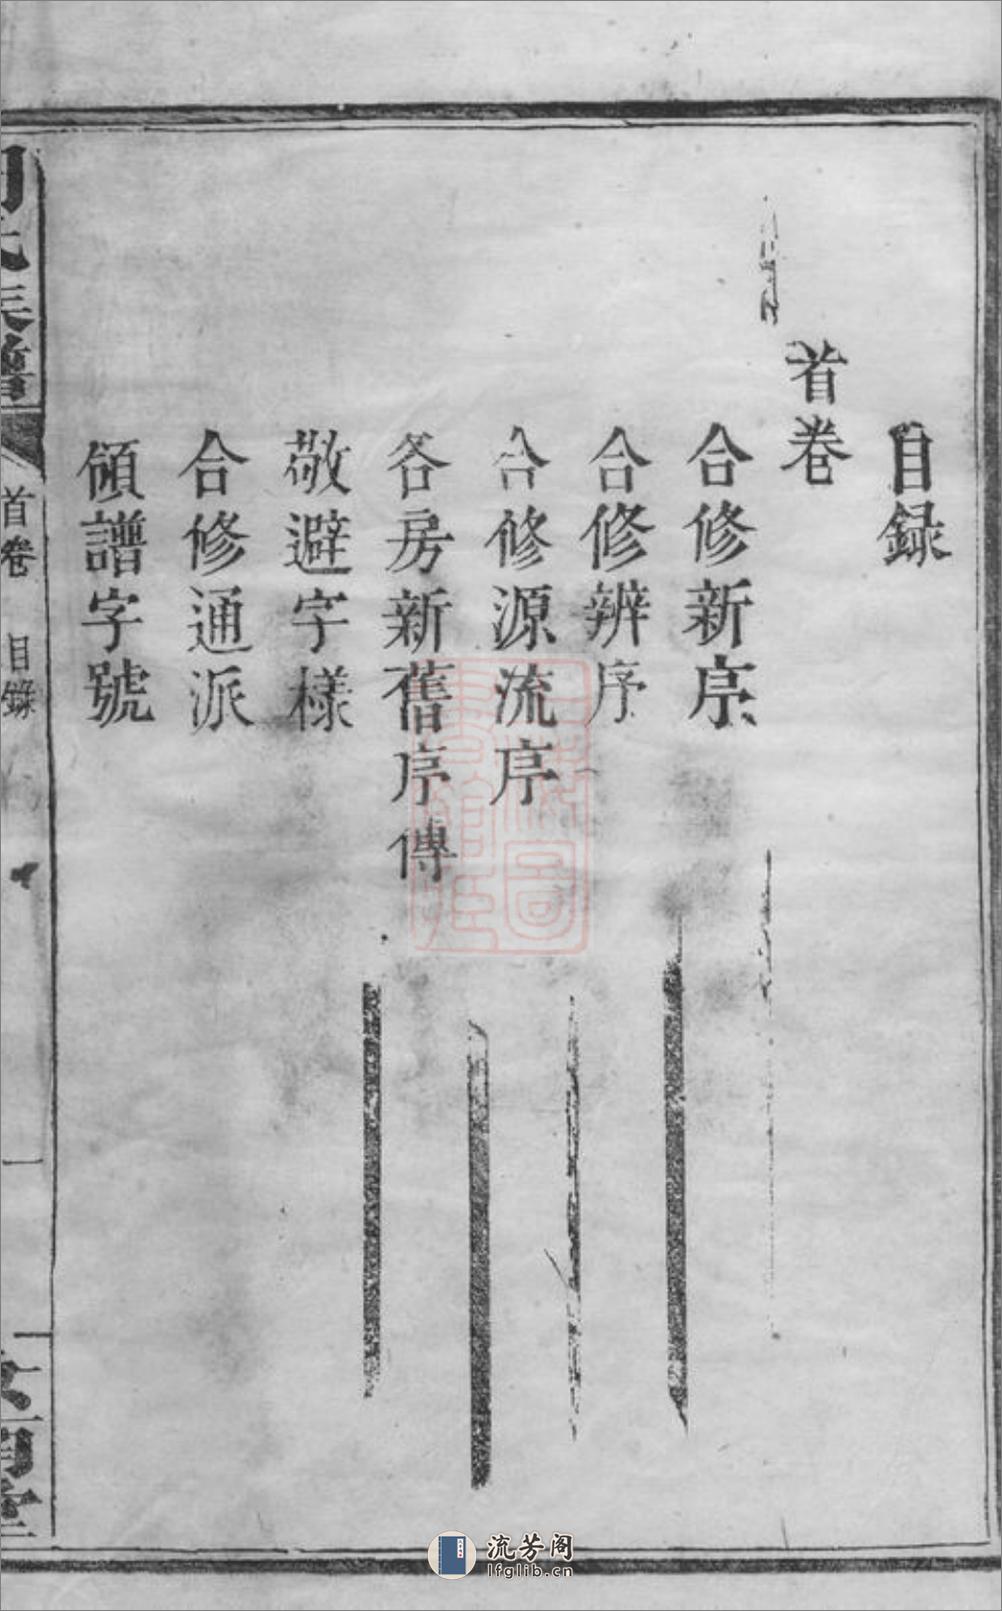 目録
首卷
合修新序
合修辨序
合修源流序
各房新舊序傳
敬避字樣
合修通派
領譜字號
氏族譜
首卷
目錄
一
流芳阁
lfglib.cn